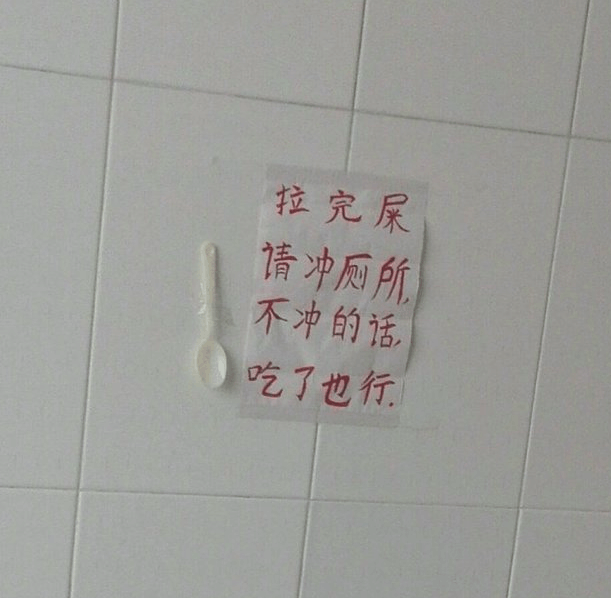 拉完屎
请冲厕所,
不冲的话,
吃了也行.